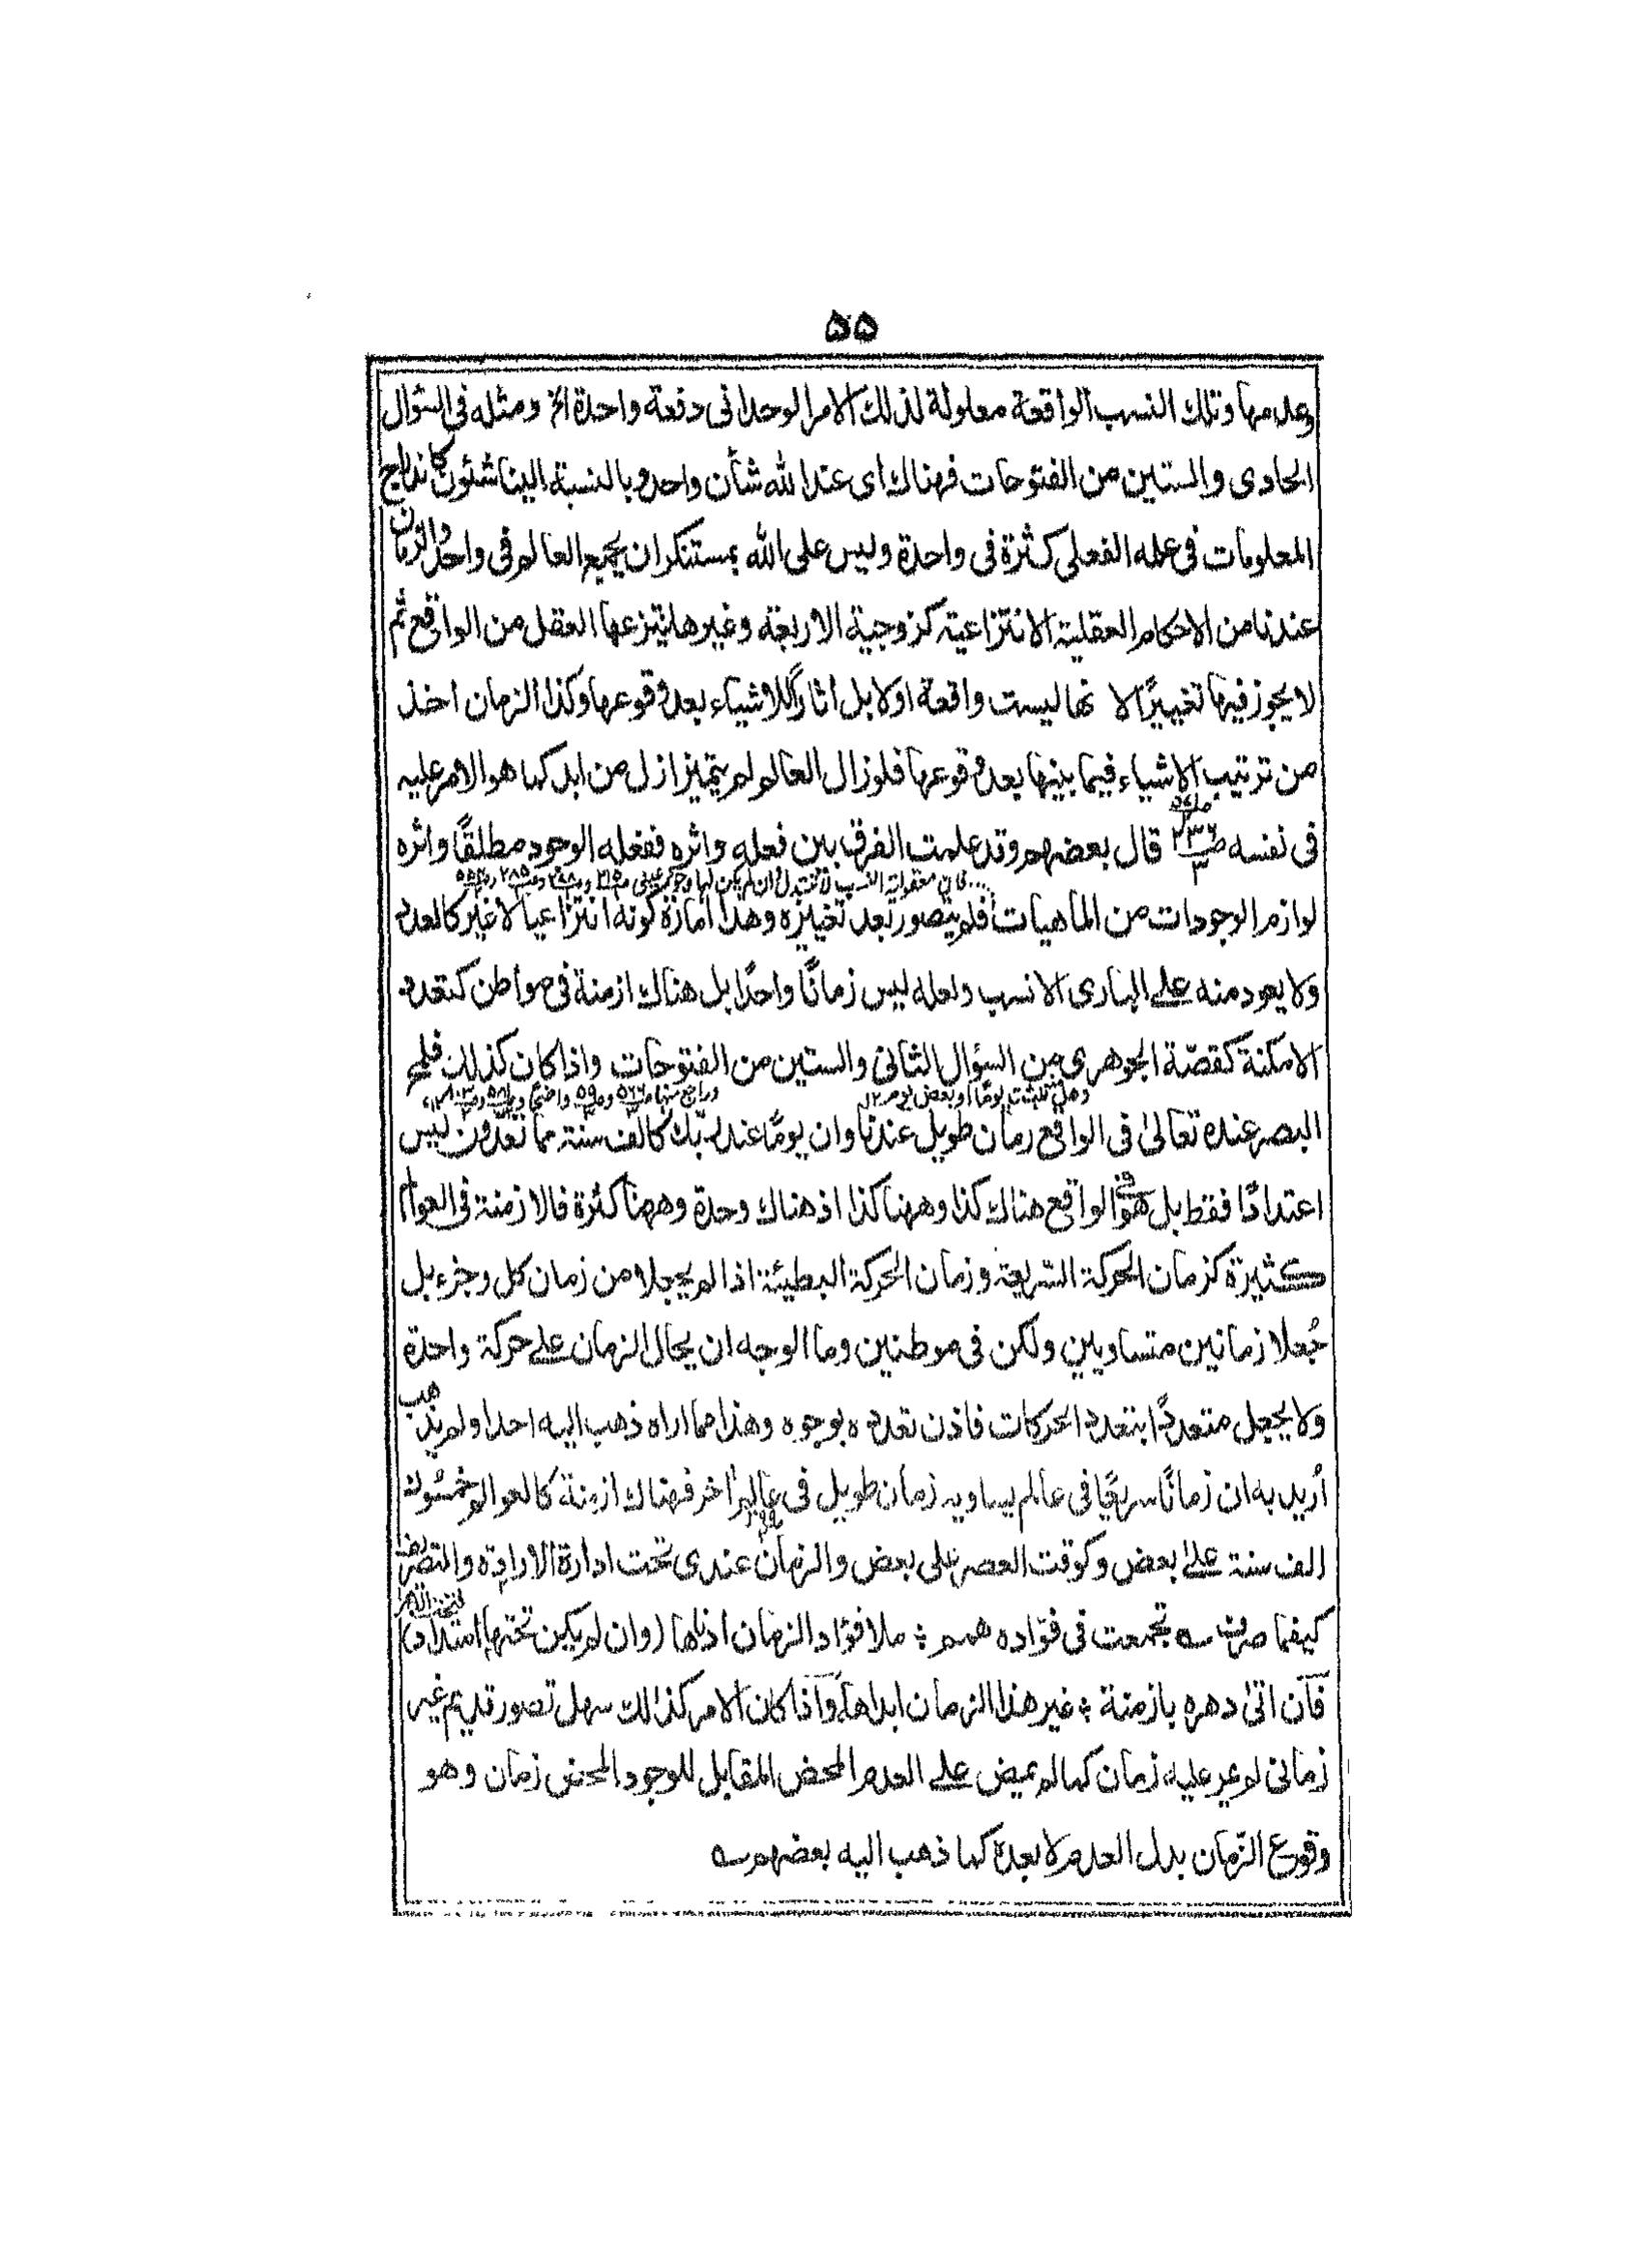 ۵۵
وعدمها وتلك النسب الواقعة معلولة لذلك الامر الوحدانى دفعة واحدة الخ ومثله فى السؤال
الحادى والستين من الفتوحات فهناك اى عند الله شأن واحد وبالنسبة الينا شئون كاندراج
المعلومات فى علمه الفعلى كثرة فى واحدة وليس على الله بمستنكر ان يجمع العالم فى واحد والزمان
عندنا من الاحكام العقلية الانتزاعية كزوجية الاربعة وغيرها ينتزعها العقل من الواقع ثم
لا يجوز فيها تغييرًا لا نها ليست واقعة اولا بل اثارًا للاشياء بعد وقوعها وكذا الزمان اخذ
من ترتيب الاشياء فيما بينها بعد وقوعها فلو زال العالم لم يتميز ازل من ابد كما هو الامر عليه
فى نفسه قال بعضهم وقد علمت الفرق بين فعله واثره ففعله الوجود مطلقًا واثره
فان معقولية النسب لا تتبدل وان لم يكن لها وجود عينى
لوازم الوجودات من الماهيات فلم يتصور بعد تغييره وهذا امارة كونه انتزاعيا لا غير كالعدم
ولا يعود منه على البارى الا نسب ولعله ليس زمانًا واحدًا بل هناك ازمنة فى مواطن كتعدد
الامكنة كقصّة الجوهرى من السؤال الثانى والستين من الفتوحات واذا كان كذلك فلمح
وهل لبثت يومًا او بعض يوم ١٢
البصر عنده تعالىٰ فى الواقع زمان طويل عندنا وان يومًا عند ربّك كالف سنة مما تعدون ليس
اعتدادًا فقط بل هو فى الواقع هناك كذا وههنا كذا اذ هناك وحدة وههنا كثرة فالازمنة فى العوالم
كثيرة كزمان الحركة السريعة وزمان الحركة البطيئة اذا لم يجعلا من زمان كل وجزء بل
جُعلا زمانين متساويين ولكن فى موطنين وما الوجه ان يحال الزمان على حركة واحدة
ولا يجعل متعددًا بتعدد الحركات فاذن تعدده بوجوه وهذا مما اراه ذهب اليه احد او لم يذهب
اُريد به ان زمانًا سريعًا فى عالم يساويه زمان طويل فى عالم اٰخر فهناك ازمنة كالعوالم خمسون
الف سنة علىٰ بعض وكوقت العصر على بعض والزمان عندى تحت ادارة الارادة والتصريف
كيفما صرفت ؎ تجمعت فى فؤاده همم ؞ ملأ فؤاد الزمان اذناها (وان لم يكن تحتها امتداد)
فان اتىٰ دهره بازمنة ؞ غير هذا الزمان ابداها، واذا كان الامر كذالك سهل تصور قديم غير
زمانى لم يمر عليه زمان كما لم يمض على العدم المحض المقابل للوجود المحض زمان وهو
وقوع الزّمان بدل العدم لا بعده كما ذهب اليه بعضهم ؎